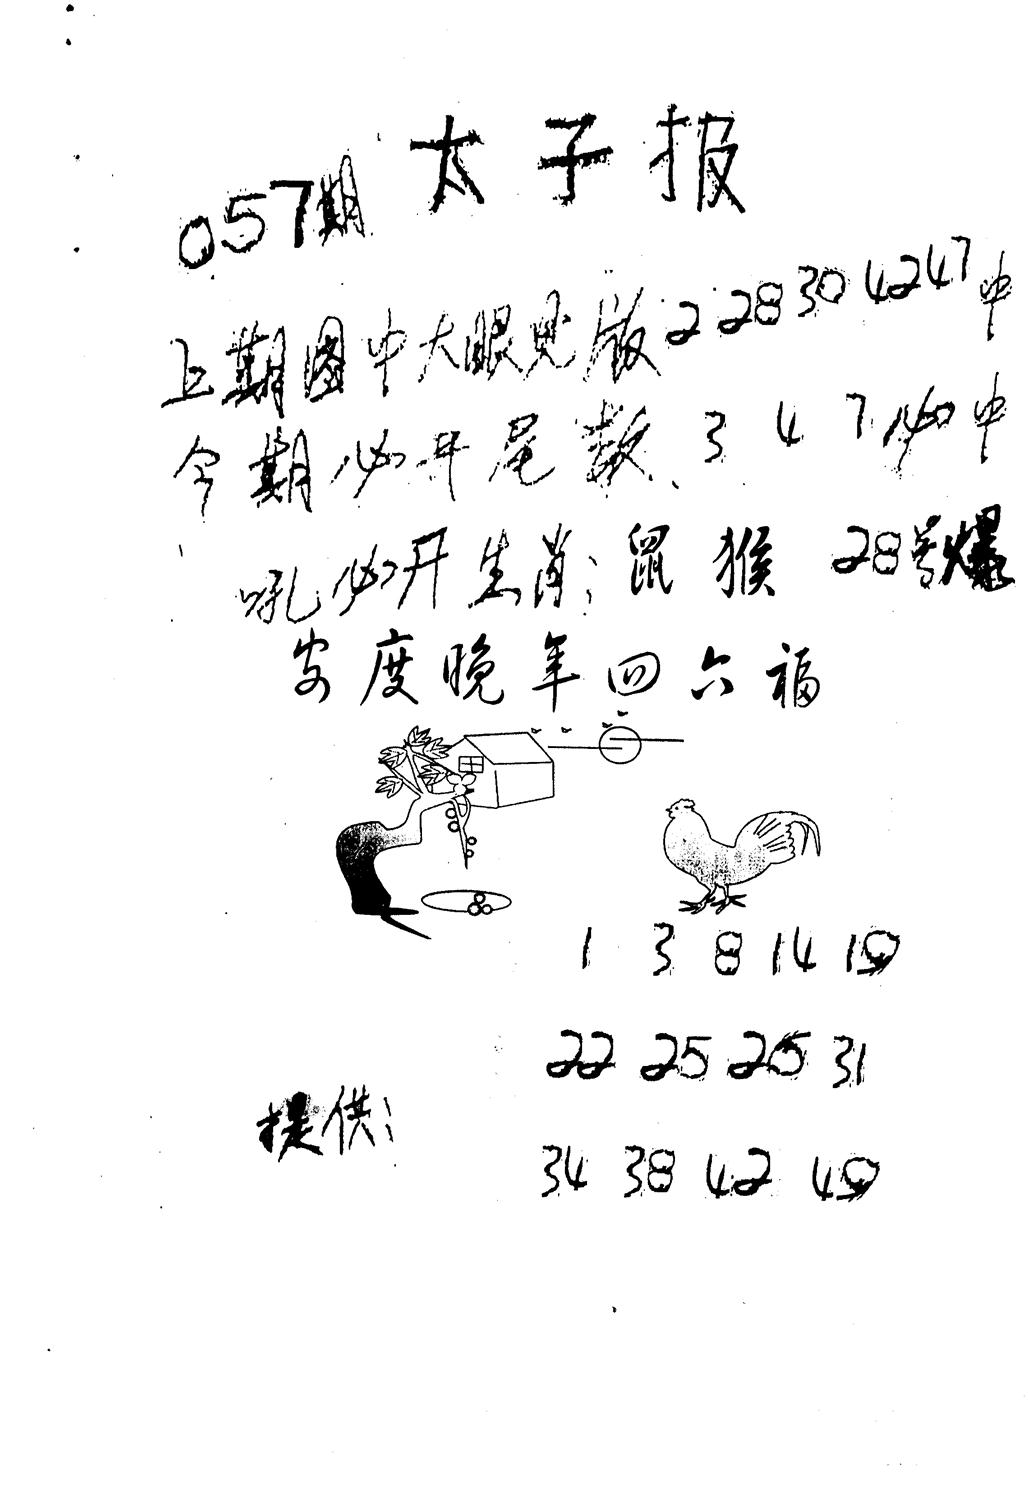 太子报
057期
上期图中大眼见版2 28 30 42 47中
今期必开尾数、3 4 7必中
吼必开生肖:鼠 猴 28号爆
安度晚年四六福
1 3 8 14 19
22 25 26 31
提供:
34 38 42 49